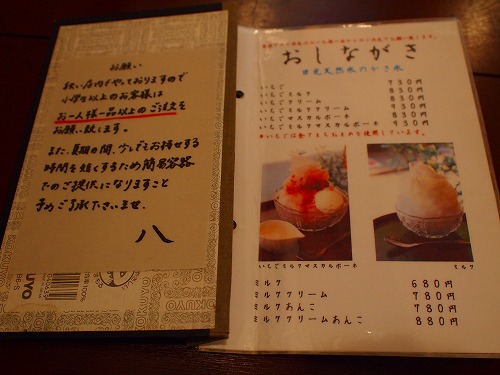 お願い
狭い店内でやっておりますので
小学生以上のお客様は
お一人様一品以上のご注文を
お願い致します。
また、夏期の間、少しでもお待せする
時間を短くするため簡易容器
でのご提供になりますこと
予めご了承下さいませ。
八
KOKUYO
おしながき
日光天然氷のかき氷
いちご 730円
いちごミルク 830円
いちごクリーム 830円
いちごミルククリーム 930円
いちごマスカルポーネ 830円
いちごミルクマスカルポーネ 930円
いちごミルクマスカルポーネ
ミルク
ミルク 680円
ミルククリーム 780円
ミルクあんこ 780円
ミルククリームあんこ 880円